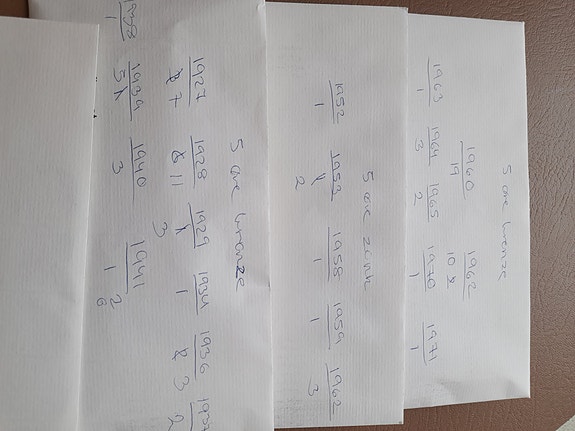 5 øre bronze
1960 1962
19 10
1963 1964 1965 1970 1971
1 3 2 1 1
5 øre zink
1952 1953 1958 1959 1962
1 2 1 1 3
5 øre bronze
1927 1928 1929 1934 1936
7 11 3 1 3 2
1939 1940 1941
1 5 3 1 2
6